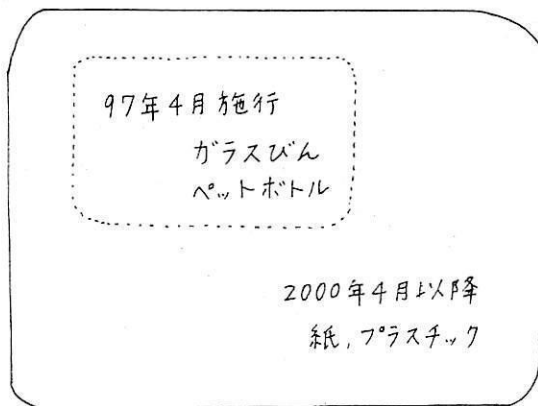 97年4月施行
ガラスびん
ペットボトル
2000年4月以降
紙,プラスチック